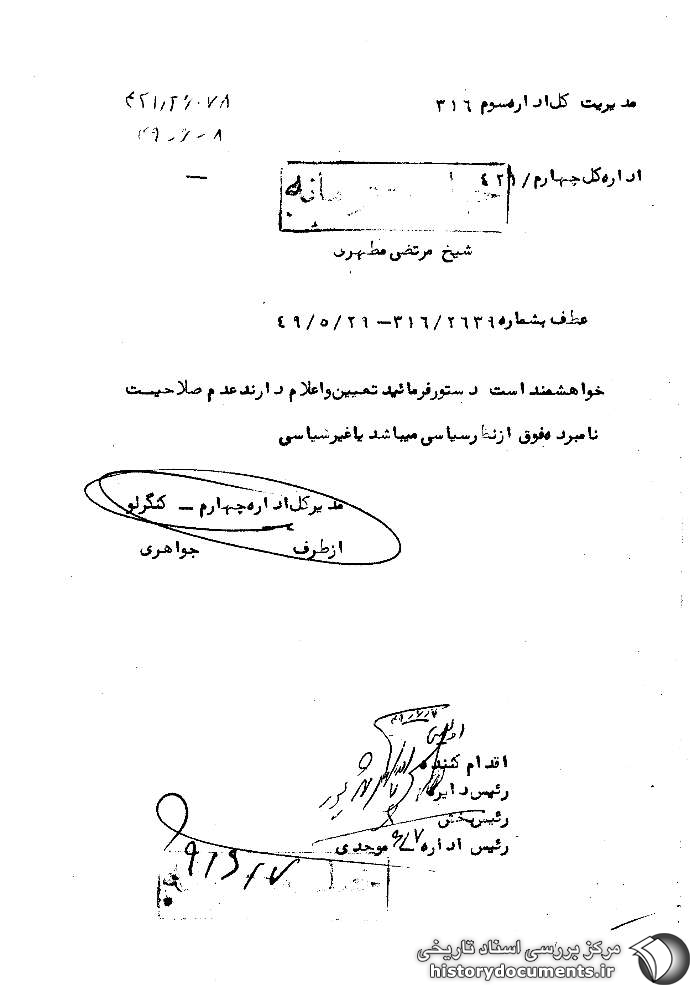 مدیریت کل اداره سوم ۳۱۶
۴۲۱/۲۶۰۷۸
۴۹-۶-۸
اداره کل چهارم/ ۴۲۱
شیخ مرتضی مطهری
عطف بشماره ۳۱۶/۲۶۳۹ – ۴۹/۵/۲۱
خواهشمند است دستور فرمائید تعیین و اعلام دارند عدم صلاحیت
نامبرده فوق از نظر سیاسی میباشد یا غیر سیاسی
مدیر کل اداره چهارم – کنگرلو
از طرف جواهری
اقدام کننده
رئیس دایره
رئیس بخش
رئیس اداره موجدی
مرکز بررسی اسناد تاریخی
historydocuments.ir